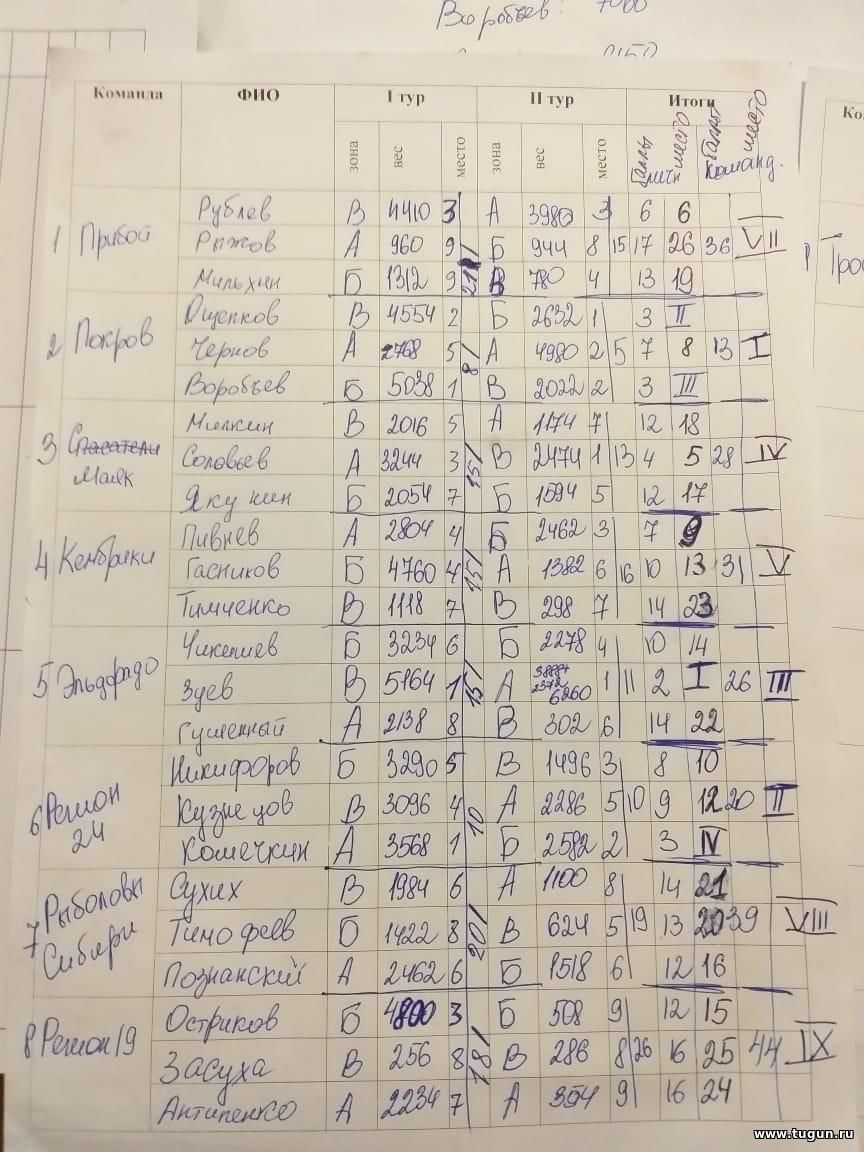 Воробьев: 7000
Команда ФИО I тур II тур Итоги
зона вес место зона вес место баллы личн место баллы команд. место
Рублев В 4410 3 А 3980 3 6 6
1 Прибой Рыжов А 960 9 21 Б 944 8 15 17 26 36 VII
Мильхин Б 1312 9 В 780 4 13 19
Ощепков В 4554 2 Б 2632 1 3 II
2 Покров Чернов А 2768 5 8 А 4980 2 5 7 8 13 I
Воробьев Б 5038 1 В 2022 2 3 III
Милкин В 2016 5 А 1174 7 12 18
3 Спасатели Соловьев А 3244 3 15 В 2474 1 13 4 5 28 IV
Маяк
Якунин Б 2054 7 Б 1594 5 12 17
Пивнев А 2804 4 Б 2462 3 7 9
4 Кембрики Гасников Б 4760 4 15 А 1382 6 16 10 13 31 V
Тимченко В 1118 7 В 298 7 14 23
Чикишев Б 3234 6 Б 2278 4 10 14
5 Эльдорадо Зуев В 5164 1 15 А 6260 1 11 2 I 26 III
Гуменный А 2138 8 В 302 6 14 22
Никифоров Б 3290 5 В 1496 3 8 10
6 Регион 24 Кузнецов В 3096 4 10 А 2286 5 10 9 12 20 II
Комечкин А 3568 1 Б 2582 2 3 IV
Сухих В 1984 6 А 1100 8 14 21
7 Рыболовы Сибири Тимофеев Б 1422 8 20 В 624 5 19 13 20 39 VIII
Познанский А 2462 6 Б 1518 6 12 16
Остриков Б 4800 3 Б 508 9 12 15
8 Регион 19 Засуха В 256 8 18 В 286 8 26 16 25 44 IX
Антипенко А 2234 7 А 354 9 16 24
www.tugun.ru